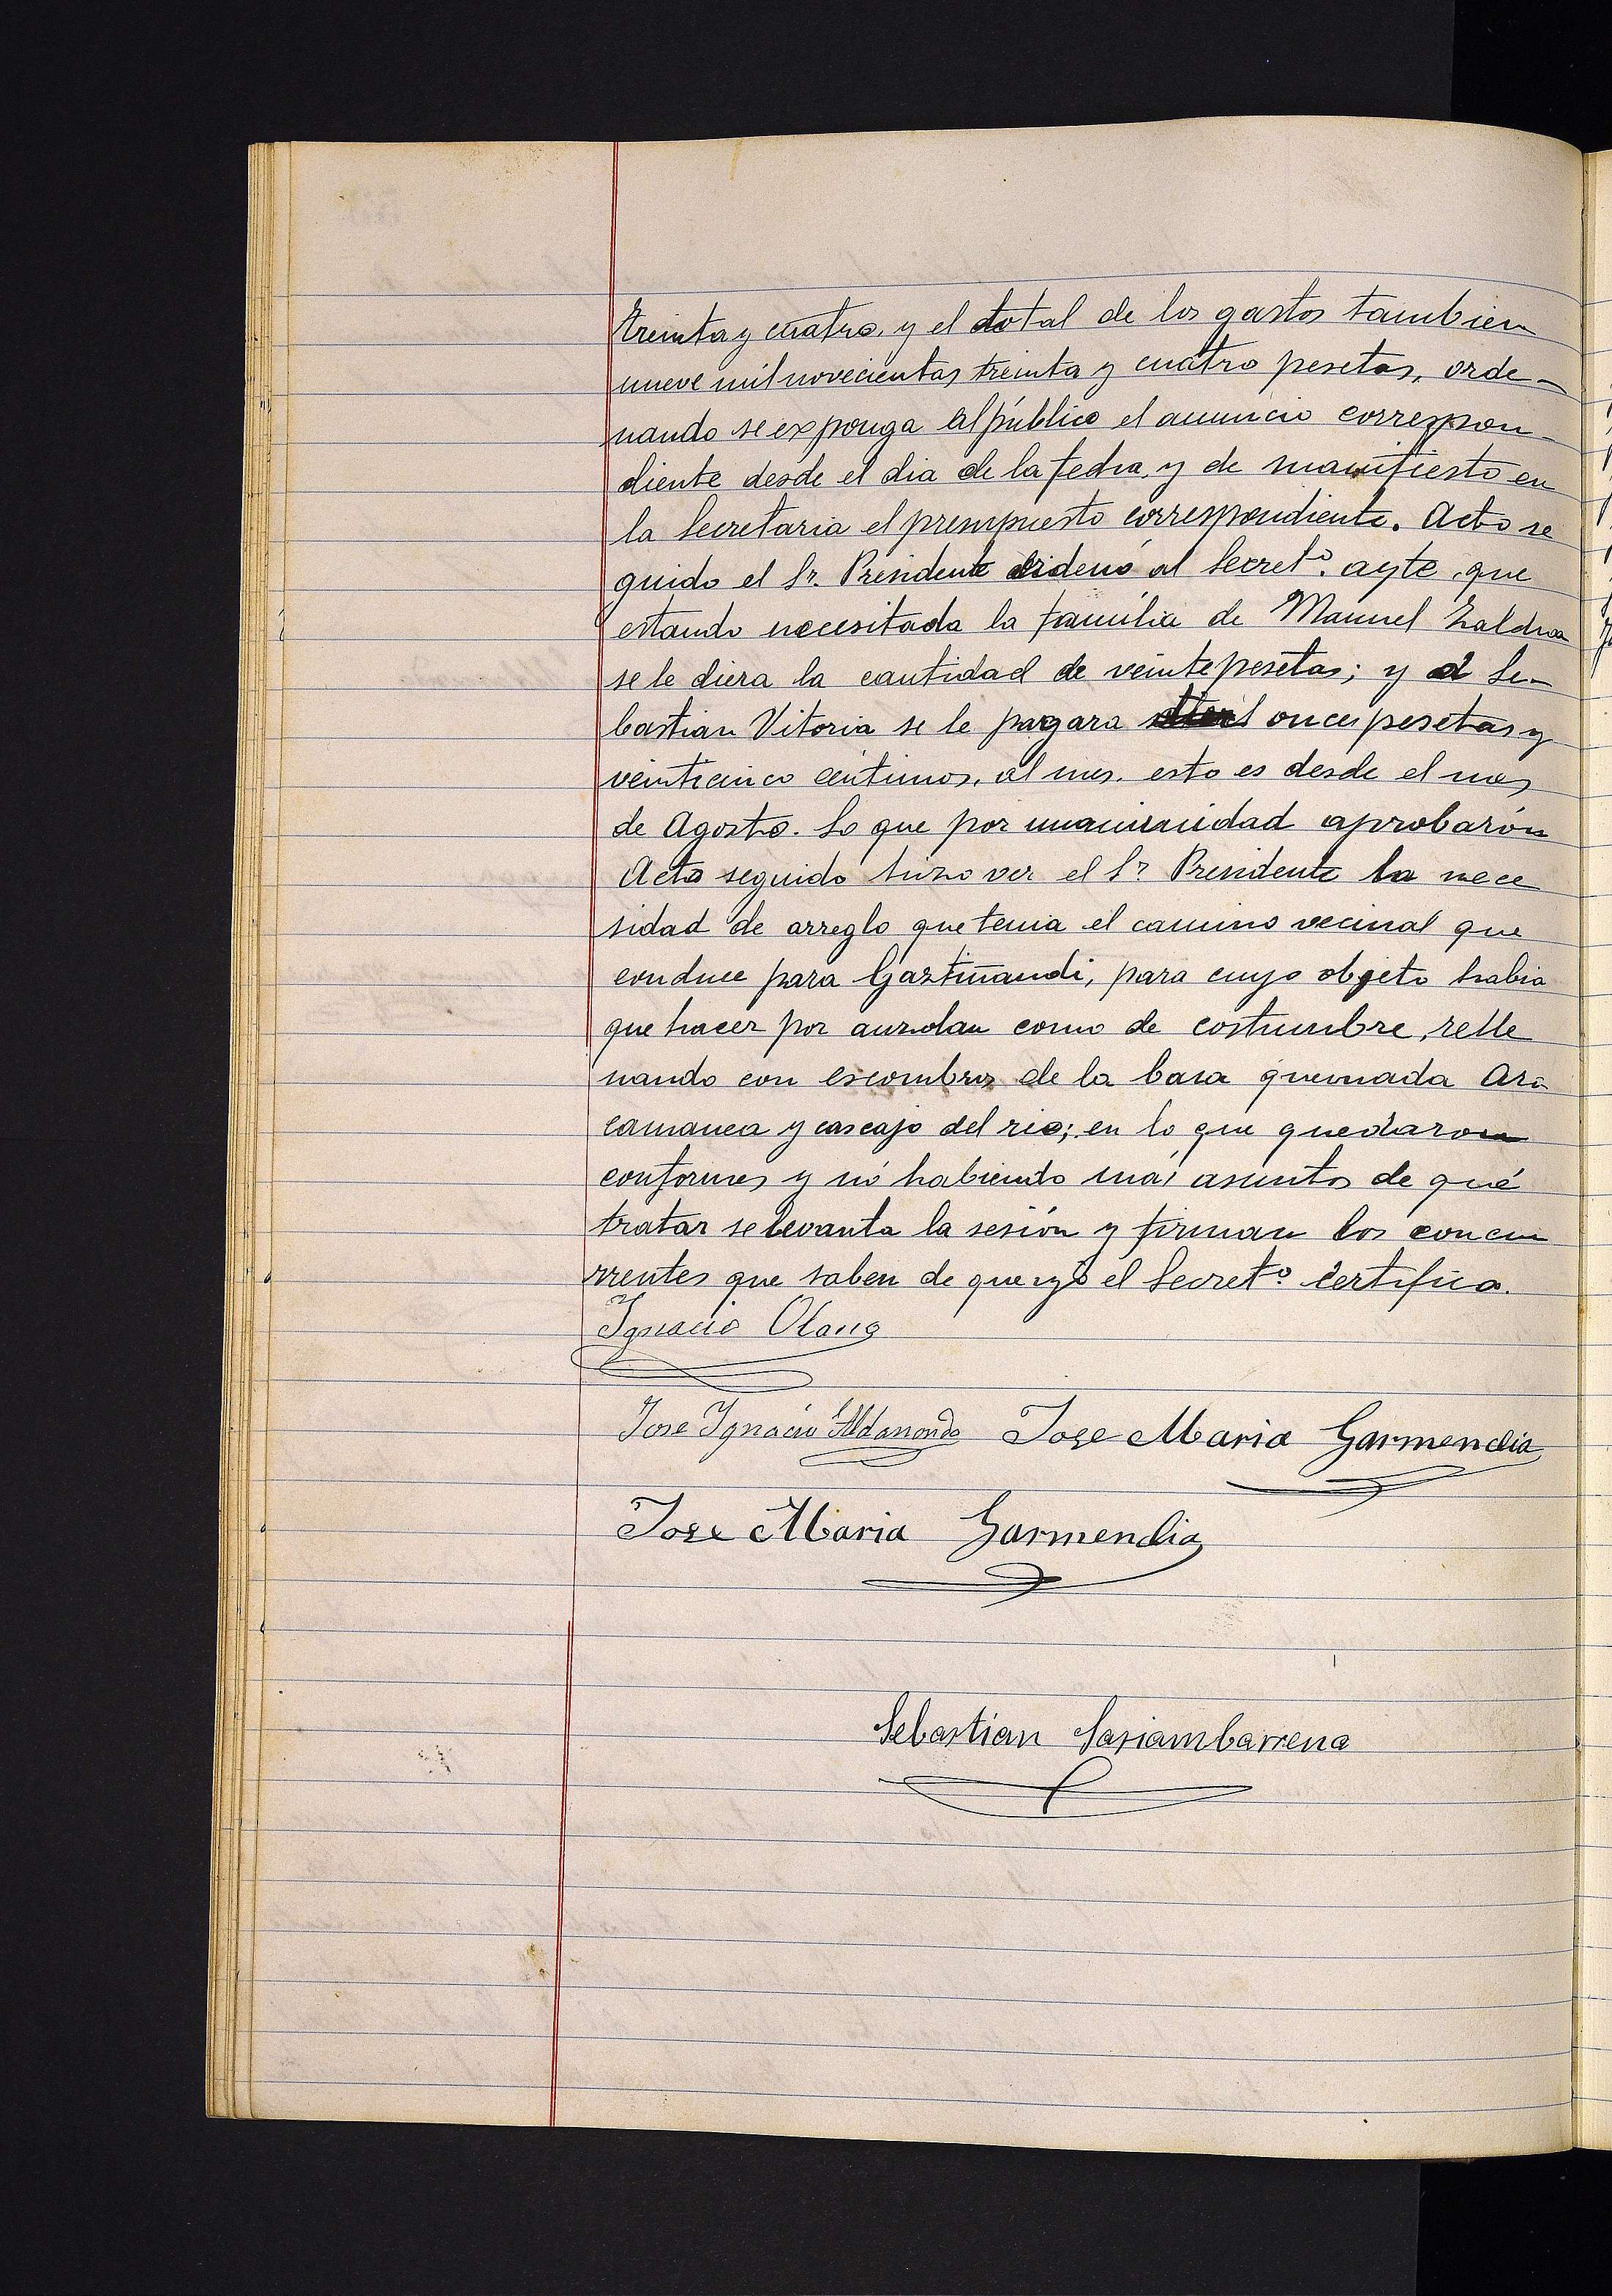 treinta y cuatro, y el total de los gastos tambien
nueve mil novecientas treinta y cuatro pesetas, orde-
nando se exponga al público el anuncio correspon-
diente desde el dia de la fecha, y de manifiesto en
la Secretaria el presupuesto correspondiente. Acto se
guido el Sr. Presidente ordenó al Secretº. ayte, que
estando necesitada la familia de Manuel Zaldua
se le diera la cantidad de veinte pesetas; y a Se-
bastian Vitoria se le pagara once pesetas y
veinticinco centimos, al mes. esto es desde el mes
de Agosto. Lo que por unanimidad aprobarón
Acto seguido hizo ver el Sr. Presidente la nece
sidad de arreglo que tenia el camino vecinal que
conduce para Gaztiñandi, para cuyo objeto habia
que hacer por auzolan como de costumbre, relle
nando con escombros de la casa quemada Ara
camanea y cascajo del rio; en lo que quedaron
conformes y nó habiendo más asuntos de qué
tratar se levanta la sesión y firman los concu
rrentes que saben de que yo el Secretº. certifico.
Ignacio Olano
Jose Ignacio Aldanondo Jose Maria Garmendia
Jose Maria Garmendia
Sebastian Sasiambarrena